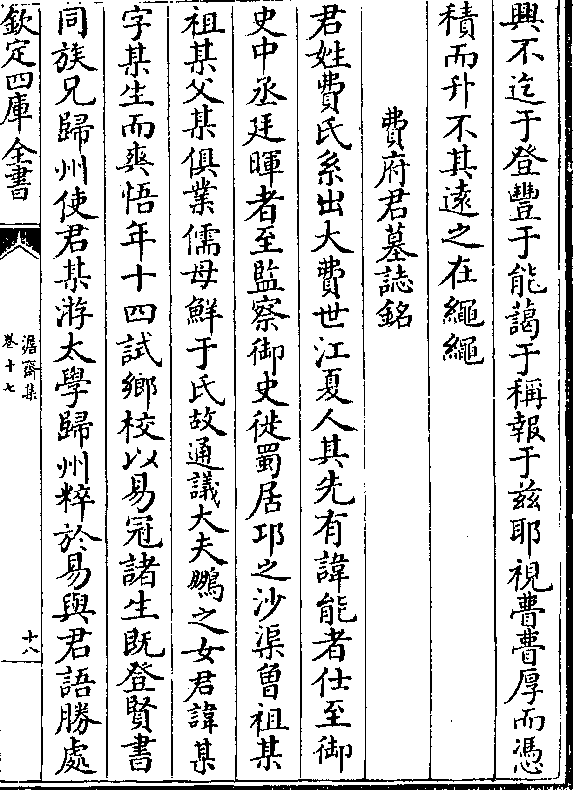 興不迄于登豐于能藹于稱報于兹耶視瞢瞢厚而憑
積而升不其遠之在繩繩
費府君墓誌銘
君姓費氏系出大費世江夏人其先有諱能者仕至御
史中丞廷暉者至監察御史徙蜀居邛之沙渠曾祖某
祖某父某俱業儒母鮮于氏故通議大夫鵬之女君諱某
字某生而爽悟年十四試鄉校以易冠諸生既登賢書
同族兄歸州使君某游太學歸州粹於易與君語勝處
欽定四庫全書
卷十七
十八